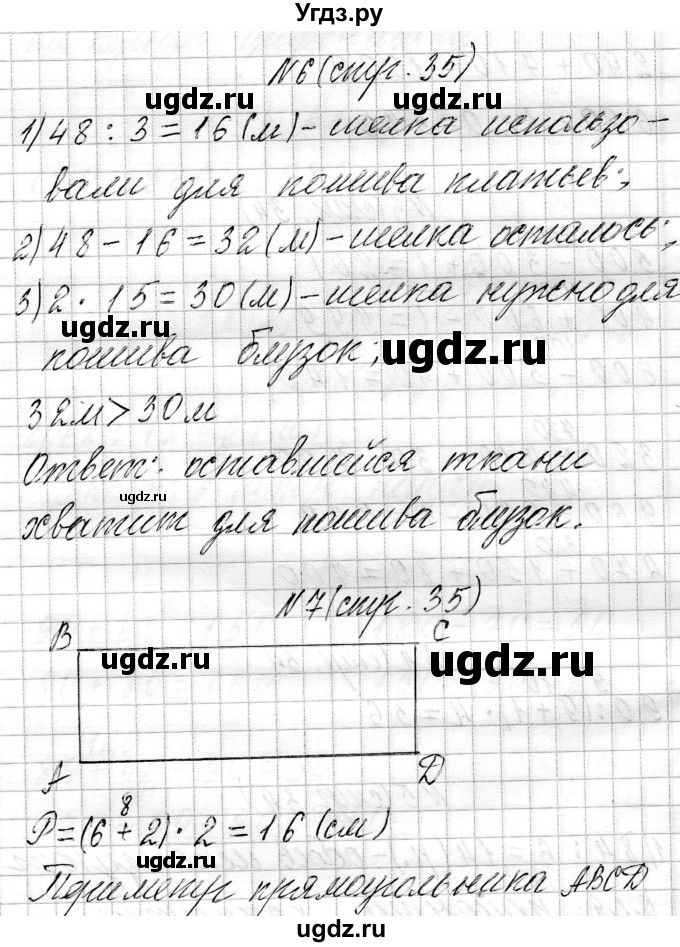 Угдз.ру
N6 (стр. 35)
ugdz.ru ugdz.ru
1) 48 : 3 = 16 (м) - шелка использо-
вали для пошива платьев;
2) 48 - 16 = 32 (м) - шелка осталось;
3) 2 · 15 = 30 (м) - шелка нужно для
ugdz.ru
пошива блузок; ugdz.ru
32м > 30м
Ответ: оставшейся ткани
ugdz.ru ugdz.ru
хватит для пошива блузок.
N7 (стр. 35)
B C
ugdz.ru ugdz.ru
A D
8
P = (6 + 2) · 2 = 16 (см)
ugdz.ru ugdz.ru
Периметр прямоугольника ABCD
ugdz.ru